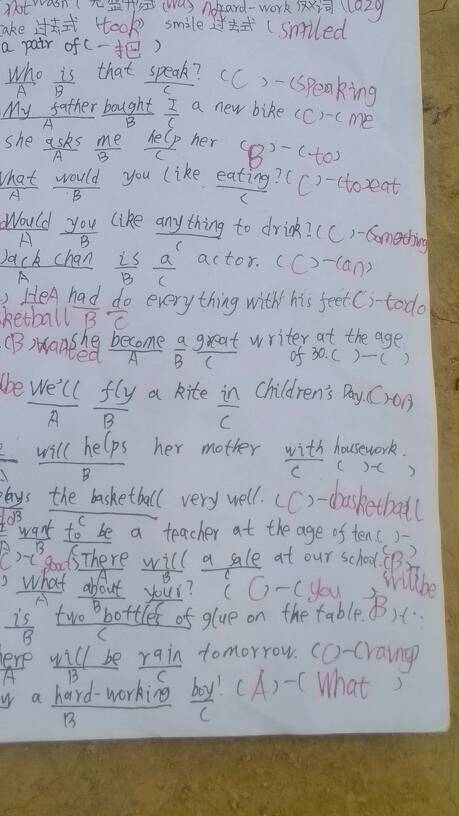 not wash ( 完整形式 ) (was not hard-work 反义词 (lazy
take 过去式 (took) smile 过去式 ( smiled
a pair of ( 一把 )
Who is that speak? (C) - (speaking
A B C
My father bought I a new bike (C) - ( me
A B C
she asks me help her (B) - (to)
A B C
What would you like eating? (C) - (to eat
A B C
Would you like anything to drink? (C) - (something
A B C
Jack chan is a actor. (C) - (an)
A B C
He had do everything with his feet C) - to do
A B C
basketball
(B) wanted she become a great writer at the age of 30. ( ) - ( )
A B C
be We'll fly a kite in Children's Day. C) on
A B C
will helps her mother with housework. ( ) - ( )
B C
plays the basketball very well. (C) - basketball
B C
I want to be a teacher at the age of ten. ( ) -
A B
There will a sale at our school. (B)
A B C
will be
What about your? ( C - ( you )
A B C
is two bottles of glue on the table. B) - ( :
B C
There will be rain tomorrow. (C) - (rainy)
A B C
a hard-working boy! (A) - ( What )
B C